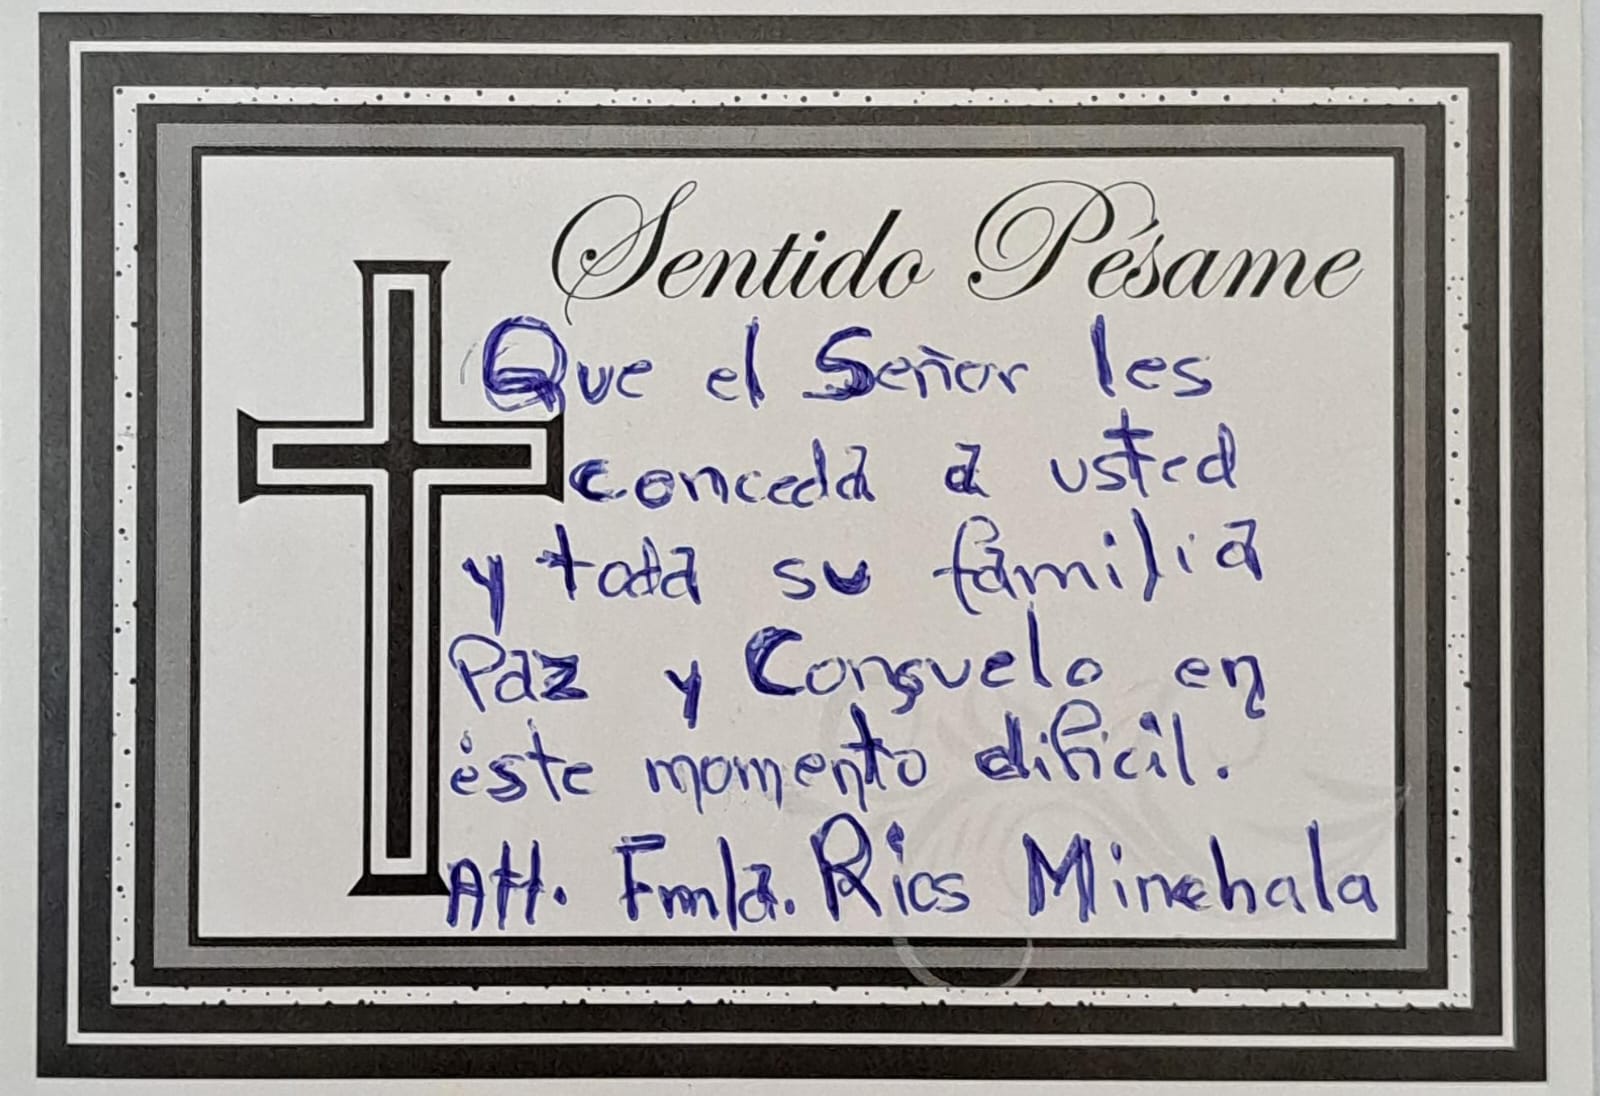 Sentido Pésame
Que el Señor les
conceda a usted
y toda su familia
Paz y Consuelo en
éste momento dificil.
Att. Fmla. Rios Minchala